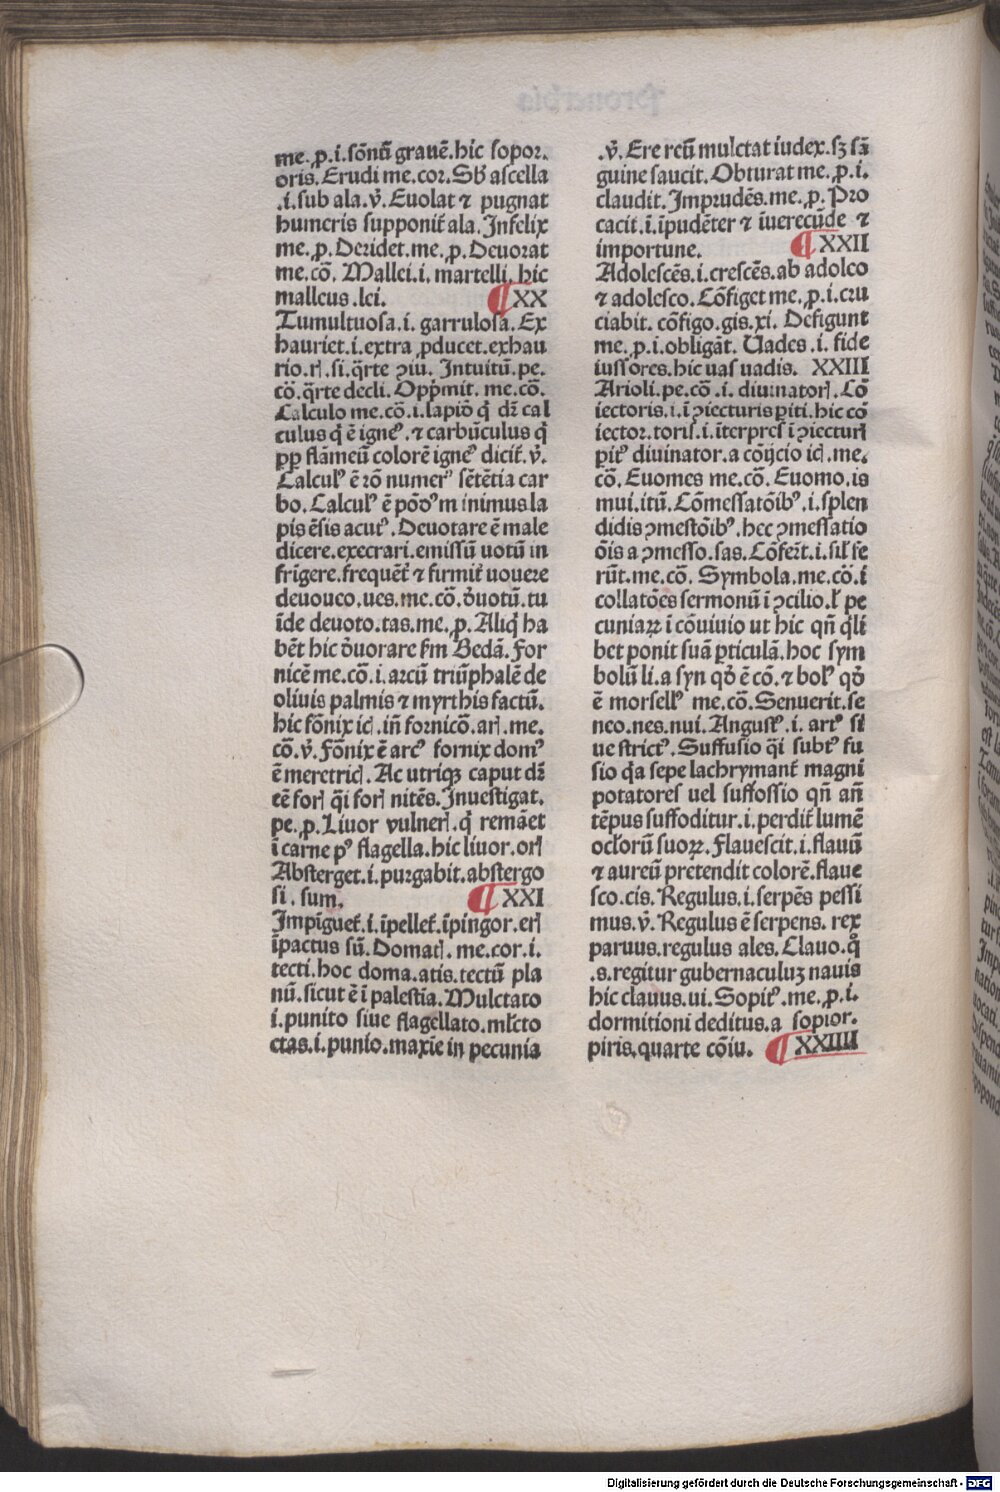 me.ꝓ.i.sōnū grauē.hic sopor.
oris.Erudi me.cor.Sb̄ ascella
.i.sub ala.v̄.Euolat ⁊ pugnat
humeris supponit̄ ala.Infelix
me.ꝓ.Deridet.me.ꝓ.Deuorat
me.cō.Mallei.i.martelli.hic
malleus.lei. ¶XX
Tumultuosa.i.garrulosa.Ex
hauriet.i.extra ꝓducet.exhau
rio.rꝭ.si.q̄rte ꝯiu.Intuitū.pe.
cō.q̄rte decli.Opp̄mit.me.cō.
Calculo me.cō.i.lapiō q̄ dr̄ cal
culus q̄ ē igneꝰ.⁊ carbūculus q̄
ꝓpꝑ flāmeū colorē igneꝰ dicit̄.v̄.
Calculꝰ ē rō numerꝰ sētētia car
bo.Calculꝰ ē pōdꝰ minimus la
pis ēsis acutꝰ.Deuotare ē male
dicere.execrari.emissū uotū in
frīgere.frequēt̄ ⁊ firmit̄ uouere
deuoueo.ues.me.cō.ō̄uotū.tu
īde deuoto.tas.me.ꝓ.Aliq̄ ha
bēt hic ō̄uorare ẜm Bedā.For
nicē me.cō.i.arcū triūphalē de
oliuis palmis ⁊ myrthis factū.
hic fōnix icꝭ.in̄ fornicō.arꝭ.me.
cō.v̄.Fōnix ē arcꝰ fornix domꝰ
ē meretricꝭ.Ac utriqꝫ caput dr̄
eē forꝭ q̄i forꝭ nitēs.Inuestigat.
pe.ꝓ.Liuor vulnerꝭ.q̄ remāet
ī carne pꝰ flagella.hic liuor.orꝭ
Absterget.i.purgabit.abstergo
si.sum. ¶XXI
Impīguet̄.i.īpellet̄.īpingor.erꝭ
īpactus sū.Domatꝭ.me.cor.i.
tecti.hoc doma.atis.tectū pla
nū.sicut ē ī palestīa.Mulctato
.i.punito siue flagellato.ml̄cto
ctas.i.punio.maxīe in pecunia
.v̄.Ere reū mulctat iudex.sꝫ sā
guine saucit.Obturat me.ꝓ.i.
claudit.Imprudēs.me.ꝓ.Pro
cacit̄.i.īpudēter ⁊ īuerecūde ⁊
importune. ¶XXII
Adolescēs.i.crescēs.ab adoleo
⁊ adolesco.Cōfiget me.ꝓ.i.cru
ciabit.cōfigo.gis.xi.Defigunt
me.ꝓ.i.obligāt.Uades.i.fide
iussores.hic uas uadis. XXIII
Arioli.pe.cō.i.diuinatorꝭ.Cō
iectoris.i.ī ꝯiecturis ꝑiti.hic cō
iector.toris.i.īterpres ī ꝯiecturꝭ
ꝑitꝰ diuinator.a cōijcio icꝭ.me.
cō.Euomes me.cō.Euomo.is
mui.itū.Cōmessatōibꝰ.i.splen
didis ꝯmestōibꝰ.hec ꝯmessatio
ōis a ꝯmesso.sas.Cōfer̄t.i.sil̄ fe
rūt.me.cō.Symbola.me.cō.i
collatōes sermonū ī ꝯcilio.l̄ pe
cuniaꝝ ī cōuiuio ut hic qn̄ q̄li
bet ponit suā ꝑticulā.hoc sym
bolū li.a syn qō̄ ē cō.⁊ bolꝰ qō̄
ē morsellꝰ me.cō.Senuerit.se
neo.nes.nui.Angustꝰ.i.artꝰ si
ue strictꝰ.Suffusio q̄i subtꝰ fu
sio q̄a sepe lachrymant̄ magni
potatores uel suffossio qn̄ an̄
tēpus suffoditur.i.perdit̄ lumē
ocl̄orū suoꝝ.Flauescit.i.flauū
⁊ aureū pretendit colorē.flaue
sco.cis.Regulus.i.serpēs pessi
mus.v̄.Regulus ē serpens.rex
paruus.regulus ales.Clauo.q̊
.s.regitur gubernaculuꝫ nauis
hic clauus.ui.Sopitꝰ.me.ꝓ.i.
dormitioni deditus.a sopior.
piris.quarte cōiu. ¶XXIIII
Digitalisierung gefördert durch die Deutsche Forschungsgemeinschaft - DFG